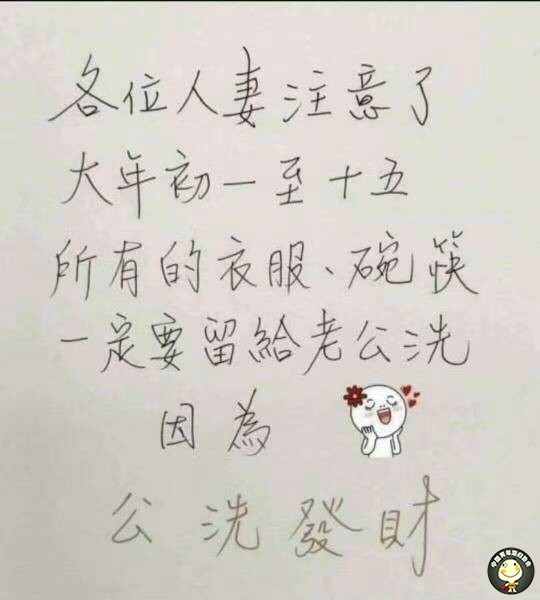 各位人妻注意了
大年初一至十五
所有的衣服、碗筷
一定要留給老公洗
因為
公洗發財